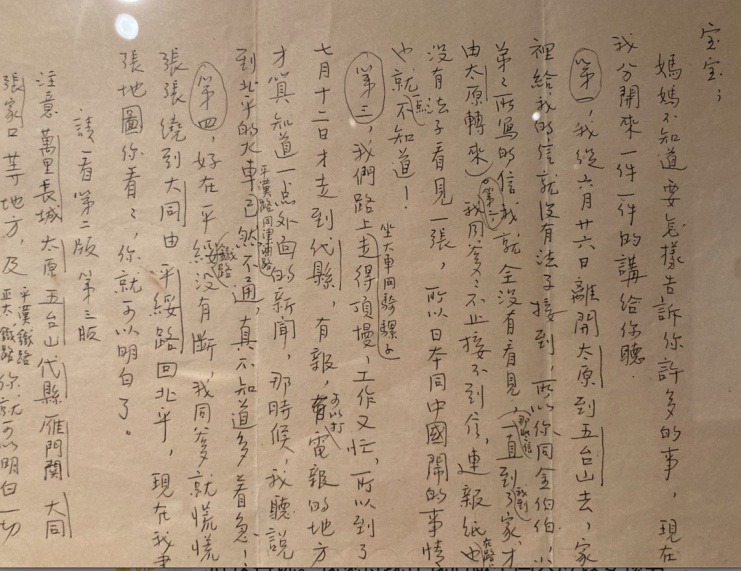 宝宝：
媽媽不知道要怎樣告訴你許多的事，現在
我分開來一件一件的講給你聽
第一，我從六月廿六日離開太原到五台山去，家
裡給我的信就沒有法子接到，所以你同金伯伯、小
弟弟所寫的信我就全沒有看見，(那些信一直到我到了家，才
由太原轉來)
第二，我同爹爹不止接不到信，連報紙也
沒有法子看見一張，所以日本同中國鬧的事情
也就一点不知道！
第三，我們路上坐大車同騎騾子走得頂慢，工作又忙，所以到了
七月十二日才走到代縣，有報，可以打電報的地方
才算知道一点外面的新聞，那時候，我聽說
到北平的火車平漢路同津浦路已然不通，真不知道多着急！
第四，好在平綏鐵路沒有斷，我同爹爹就慌慌
張張繞到大同由平綏路回北平，現在我
張地圖你看看，你就可以明白了。
請看第二版 第三版
注意萬里長城 太原 五台山 代縣 雁門關 大同
張家口等地方，及平漢鐵路 正太鐵路你就可以明白一切